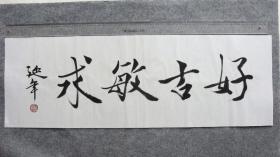 好古敏求
延年